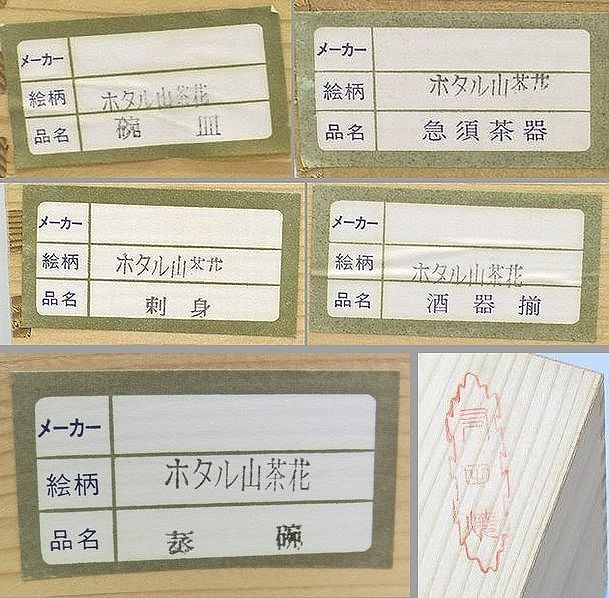 メーカー
絵柄 ホタル山茶花
品名 碗 皿
メーカー
絵柄 ホタル山茶花
品名 急須茶器
メーカー
絵柄 ホタル山茶花
品名 刺身
メーカー
絵柄 ホタル山茶花
品名 酒器揃
メーカー
絵柄 ホタル山茶花
品名 蒸碗
有田焼